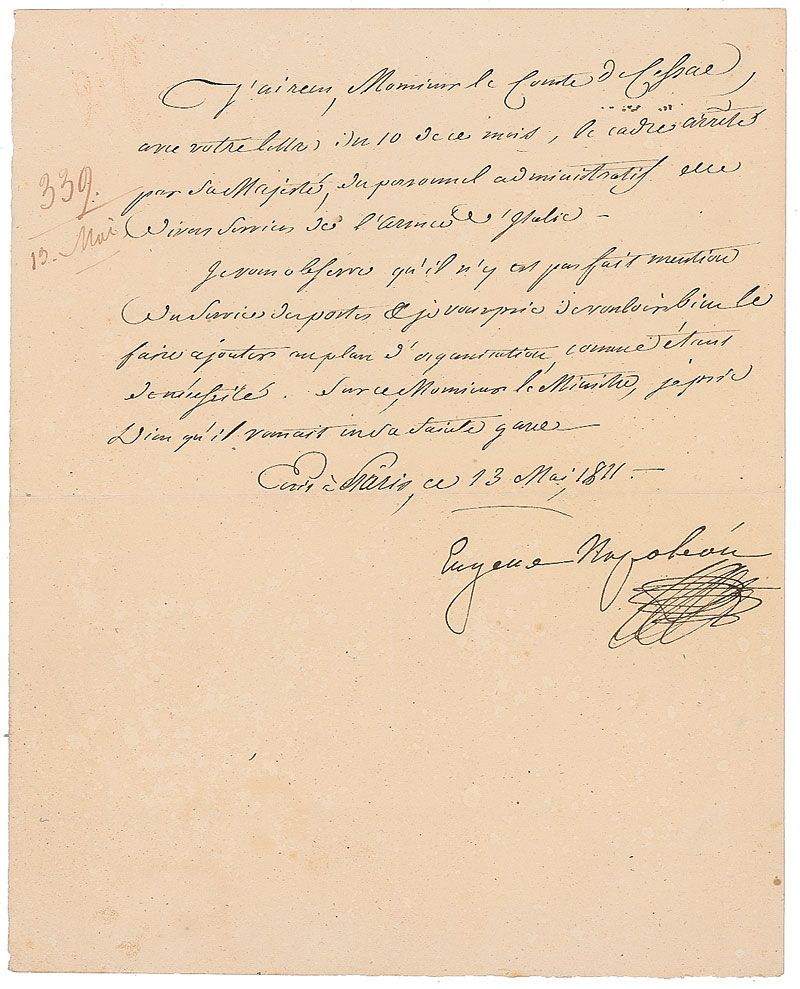 J'ai reçu, Monsieur le Comte de Cessac,
avec votre lettre du 10 de ce mois, le cadre arrêté
par Sa Majesté, du personnel administratif
divers Services de l'armée d'Italie —
339.
13. Mai
Je vous observe qu'il n'y est pas fait mention
du Service des postes & je vous prie de vouloir bien le
faire ajouter au plan d'organisation comme étant
de nécessité. Sur ce, Monsieur le Ministre, je prie
Dieu qu'il vous ait en sa sainte garde —
Ecrit à Paris, ce 13 Mai, 1811. —
Eugene Napoléon